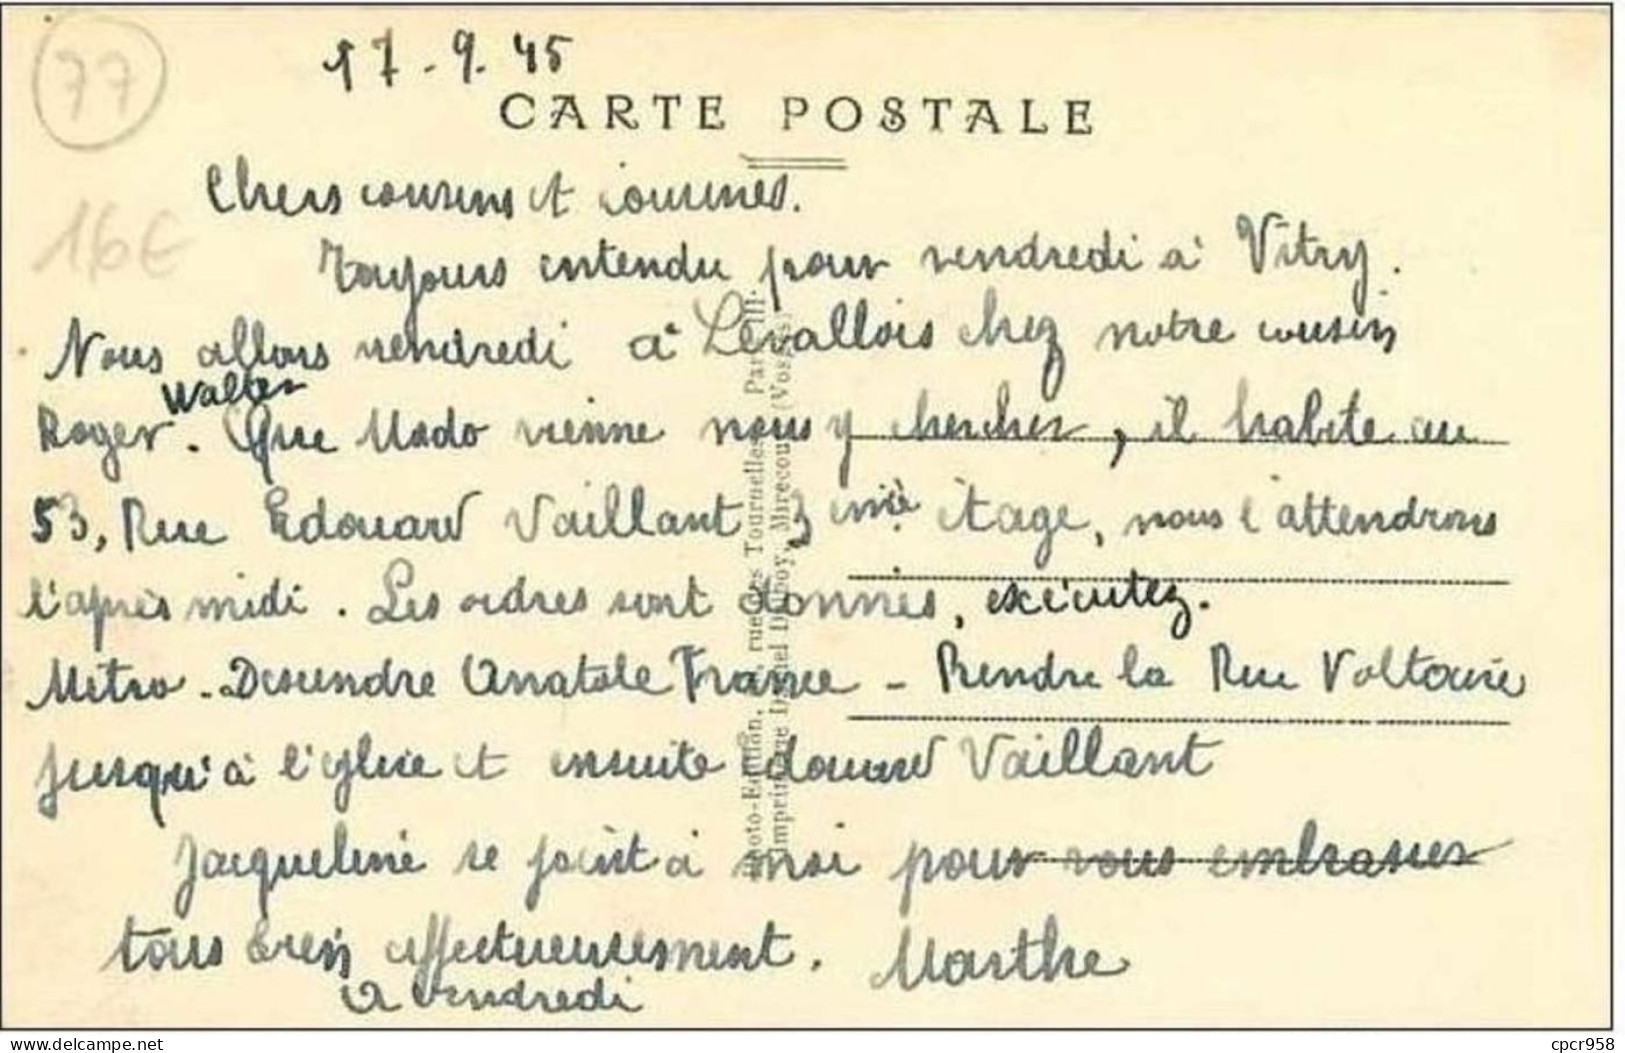 77
17-9-45
CARTE POSTALE
16€
Chers cousins et cousines.
Toujours entendu pour vendredi à Vitry.
Nous allons vendredi à Levallois chez notre cousin
Walter
Roger. Que Mado vienne nous y chercher, il habite au
53, Rue Edouard Vaillant 3ème étage, nous l'attendrons
l'après midi. Les ordres sont donnés, exécutez.
Métro - Descendre Anatole France - Prendre la Rue Voltaire
jusqu'à l'église et ensuite douard Vaillant
Jacqueline se joint à moi pour vous embrasser
tous bien affectueusement. Marthe
a vendredi
Photo-Edition, rue des Tournelles, Paris III.
Imprimerie Daniel Duboy, Mirecourt (Vosges)
delcampe.net
cpcr958